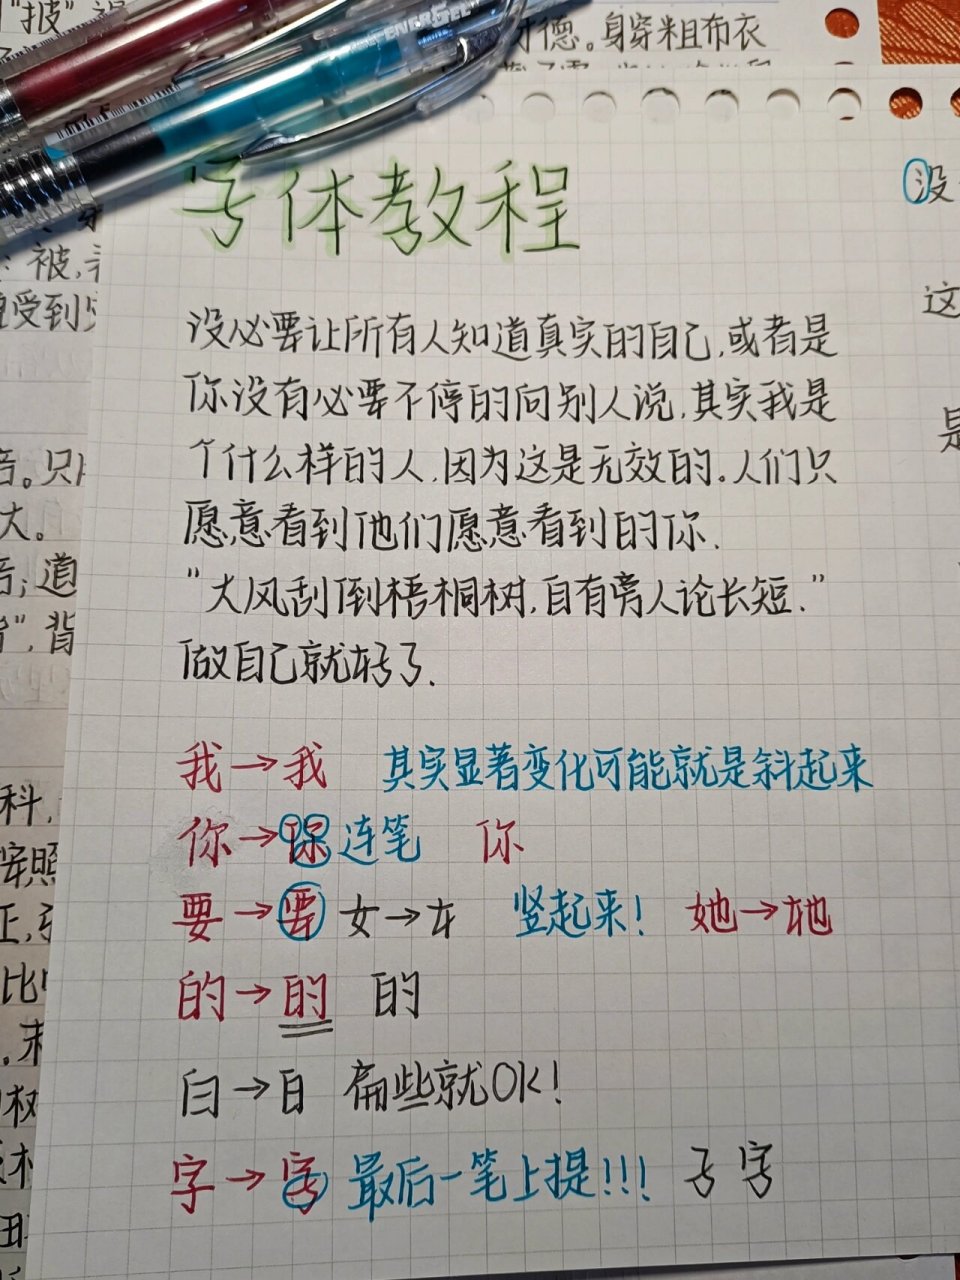 字体教程
没必要让所有人知道真实的自己,或者是
你没有必要不停的向别人说,其实我是
个什么样的人,因为这是无效的。人们只
愿意看到他们愿意看到的你.
"大风刮倒梧桐树,自有旁人论长短."
做自己就好了.
我→我 其实显著变化可能就是斜起来
你→你 连笔 你
要→要 女→女 竖起来! 她→她
的→的 的
白→白 扁些就OK!
字→字 最后一笔上提!!! 子 字
ENERGEL
"披"
德。身穿粗布衣
被,
受到
音。只
大。
音;道
",背
科,
按照
正,
比
权
没
这
是